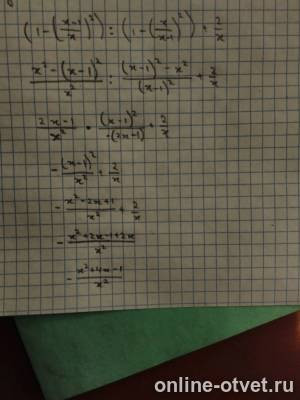 (1 - ((x-1)/x)²) : (1 - (x/(x-1))²) + 2/x
(x² - (x-1)²)/x² : ((x-1)² - x²)/(x-1)² + 2/x
(2x-1)/x² • (x-1)²/(-(2x-1)) + 2/x
-(x-1)²/x² + 2/x
-(x²-2x+1)/x² + 2/x
-(x²+2x-1+2x)/x²
-(x²+4x-1)/x²
online-otvet.ru